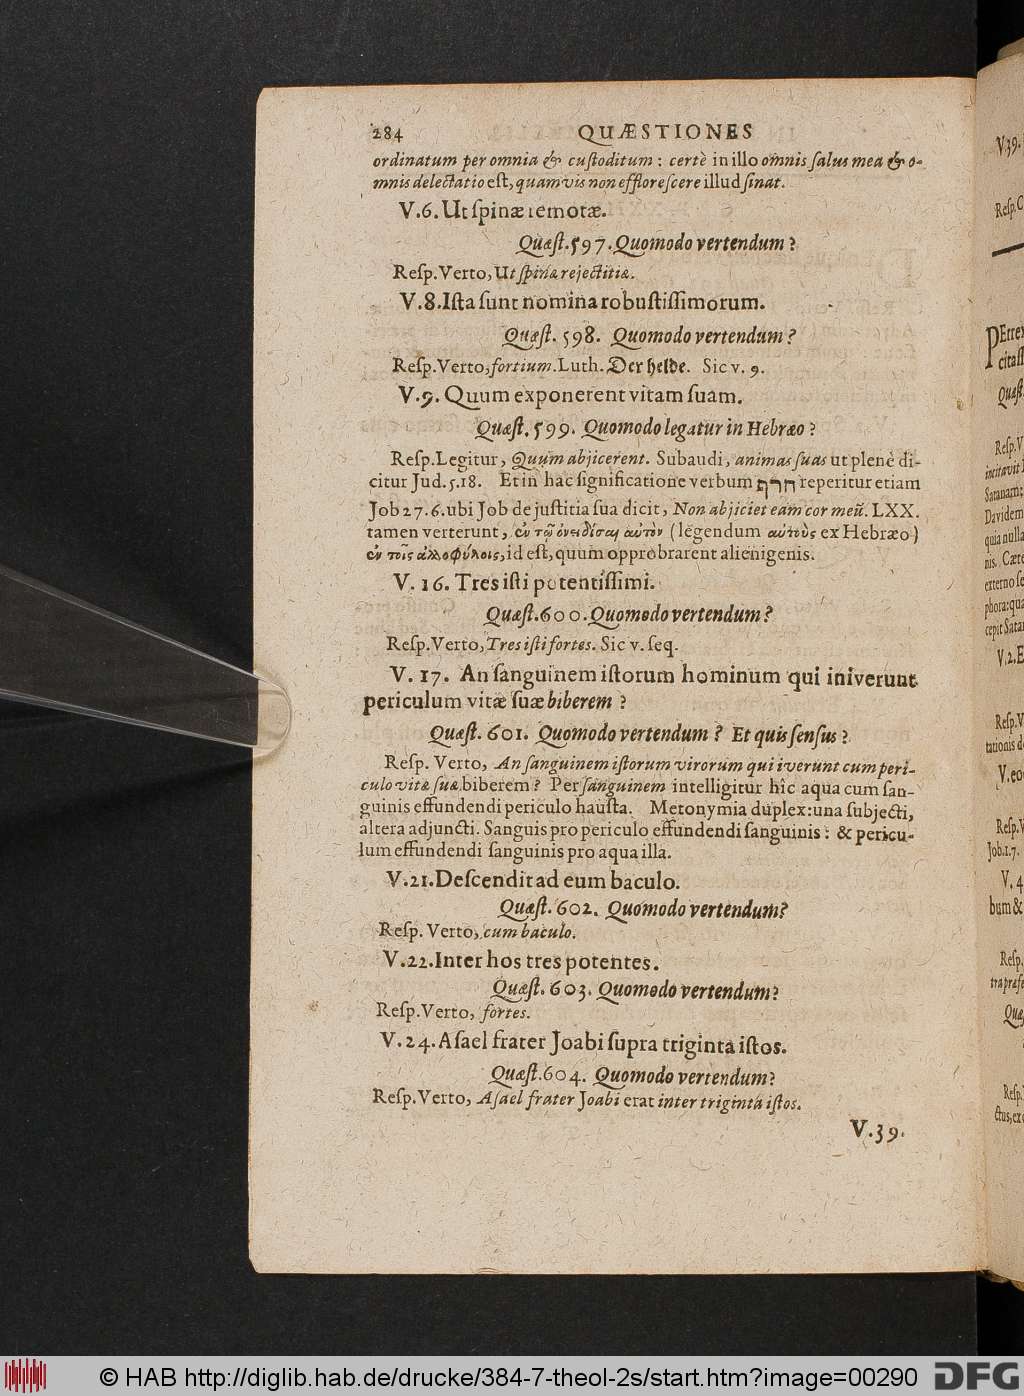 284 QUÆSTIONES
ordinatum per omnia & custoditum : certè in illo omnis ſalus mea & o-
mnis delectatio eſt, quamvis non effloreſcere illud ſinat.
V.6. Ut ſpinæ remotæ.
Quæſt. 597. Quomodo vertendum ?
Reſp. Verto, Ut ſpinæ rejectitiæ.
V.8. Iſta ſunt nomina robuſtiſſimorum.
Quæſt. 598. Quomodo vertendum ?
Reſp. Verto, fortium. Luth. Der helde. Sic v. 9.
V.9. Quum exponerent vitam ſuam.
Quæſt. 599. Quomodo legatur in Hebræo ?
Reſp. Legitur, Quum abjicerent. Subaudi, animas ſuas ut plenè di-
citur Jud. 5. 18. Et in hac ſignificatione verbum חרף reperitur etiam
Job 27. 6. ubi Job de juſtitia ſua dicit, Non abjiciet eam cor meū. LXX.
tamen verterunt, ἐν τῷ ὀνειδίσαι αὐτὸν (legendum αὐτοὺς ex Hebræo)
ἐν τοῖς ἀλλοφύλοις, id eſt, quum opprobrarent alienigenis.
V. 16. Tres iſti potentiſſimi.
Quæſt. 600. Quomodo vertendum ?
Reſp. Verto, Tres iſti fortes. Sic v. ſeq.
V. 17. An ſanguinem iſtorum hominum qui iniverunt
periculum vitæ ſuæ biberem ?
Quæſt. 601. Quomodo vertendum ? Et quis ſenſus ?
Reſp. Verto, An ſanguinem iſtorum virorum qui iverunt cum peri-
culo vitæ ſuæ biberem ? Per ſanguinem intelligitur hîc aqua cum ſan-
guinis effundendi periculo hauſta. Metonymia duplex: una ſubjecti,
altera adjuncti. Sanguis pro periculo effundendi ſanguinis : & pericu-
lum effundendi ſanguinis pro aqua illa.
V.21. Deſcendit ad eum baculo.
Quæſt. 602. Quomodo vertendum ?
Reſp. Verto, cum baculo.
V.22. Inter hos tres potentes.
Quæſt. 603. Quomodo vertendum ?
Reſp. Verto, fortes.
V.24. Aſael frater Joabi ſupra triginta iſtos.
Quæſt. 604. Quomodo vertendum ?
Reſp. Verto, Aſael frater Joabi erat inter triginta iſtos.
V.39.
V.39.
Reſp.
PErrex
citaſſ
Quæſt.
Reſp. V
incitavit
Satanam:
Davidem
quia nulla
nis. Cære
externo ſe
phora: qua
cepit Satan
V.2. E
Reſp. V
tationis d
V. eo
Reſp. V
Job. 1. 7.
V. 4
bum &
Reſp.
tra præſe
Quæ
Reſp.
ctus, ex
© HAB http://diglib.hab.de/drucke/384-7-theol-2s/start.htm?image=00290 DFG